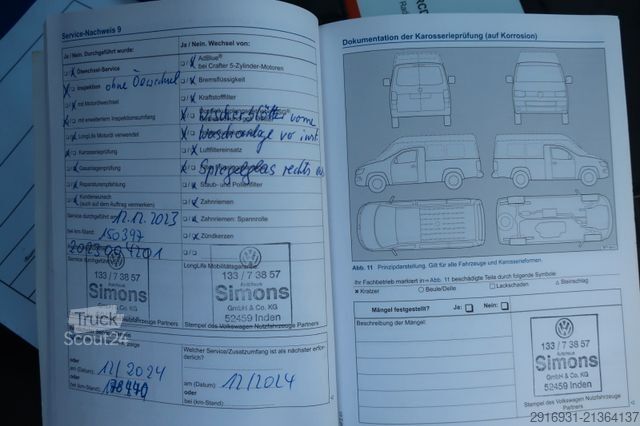 Service-Nachweis 9
Ja / Nein. Durchgeführt wurde:
Ölwechsel-Service
Inspektion ohne Ölwechsel
mit Motorölwechsel
mit erweitertem Inspektionsumfang
LongLife Motoröl verwendet
Karosserieprüfung
Gasanlagenprüfung
Reparaturempfehlung
Kundenwunsch
(auch auf dem Auftrag vermerken)
Service durchgeführt 12.12.2023
bei km-Stand: 150397
Ja / Nein. Wechsel von:
AdBlue®
bei Crafter 5-Zylinder-Motoren
Bremsflüssigkeit
Kraftstofffilter
Wischerblätter vorne
Waschanlage vo inst.
Luftfiltereinsatz
Spiegelglas rechts
Staub- und Pollenfilter
Zahnriemen
Zahnriemen: Spannrolle
Zündkerzen
LongLife Mobilitätsgarantie
133 / 7 38 57
Autohaus
Simons
GmbH & Co. KG
52459 Inden
133 / 7 38 57
Autohaus
Simons
GmbH & Co. KG
52459 Inden
Stempel des Volkswagen Nutzfahrzeuge Partners
Truck
Scout24
oder
am (Datum): 12/2024
oder
bei (km-Stand):
Welcher Service/Zusatzumfang ist als nächster erforderlich?
am (Datum): 12/2024
oder
bei (km-Stand):
Dokumentation der Karosserieprüfung (auf Korrosion)
Abb. 11 Prinzipdarstellung. Gilt für alle Fahrzeuge und Karosserieformen.
Ihr Fachbetrieb markiert in Abb. 11 beschädigte Teile durch folgende Symbole:
Kratzer Beule/Delle Lackschaden Steinschlag
Mängel festgestellt? Ja: Nein:
Beschreibung der Mängel:
133 / 7 38 57
Autohaus
Simons
GmbH & Co. KG
52459 Inden
Stempel des Volkswagen Nutzfahrzeuge
Partners
2916931-21364137